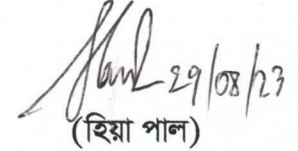 29/08/23
(হিয়া পাল)